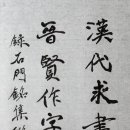 漢代求書
晉賢作字
錄石門銘集